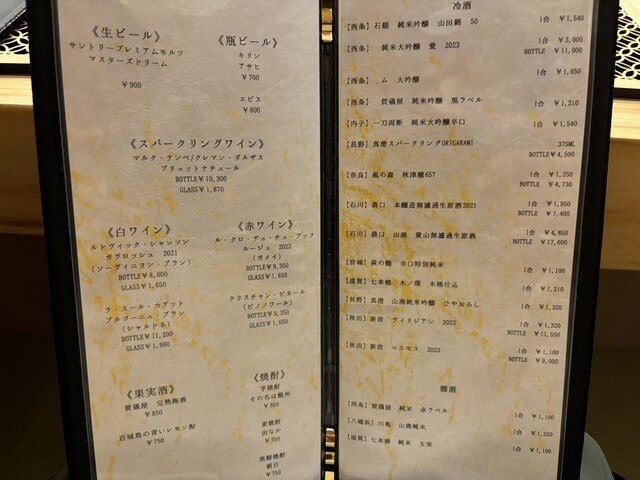 《生ビール》
サントリープレミアムモルツ
マスターズドリーム
￥900
《瓶ビール》
キリン
アサヒ
￥700
エビス
￥800
《スパークリングワイン》
マルク・テンペ/クレマン・ダルザス
ブリュットナチュール
BOTTLE￥10,300
GLASS￥1,870
《白ワイン》
ルドヴィック・シャンソン
ガヴロッシュ 2021
(ソーヴィニヨン・ブラン)
BOTTLE￥8,800
GLASS￥1,650
ラ・スール・カデット
ブルゴーニュ・ブラン
(シャルドネ)
BOTTLE￥11,200
GLASS￥1,980
《赤ワイン》
ル・クロ・デュ・チュ・ブッフ
ルージュ 2023
(ガメイ)
BOTTLE￥9,350
GLASS￥1,650
クリスチャン・ビネール
(ピノノワール)
BOTTLE￥9,350
GLASS￥1,650
《果実酒》
賀儀屋 完熟梅酒
￥850
岩城島の青いレモン酎
￥750
《焼酎》
芋焼酎
その名は甑州
￥850
麦焼酎
田なか
￥750
黒糖焼酎
朝日
￥750
冷酒
【西条】石鎚 純米吟醸 山田錦 50 1合 ￥1,540
【西条】 純米大吟醸 愛 2023 1合 ￥3,000
BOTTLE ￥11,000
【西条】 ム 大吟醸 1合 ￥1,650
【西条】 賀儀屋 純米吟醸 黒ラベル 1合 ￥1,210
【内子】一刀両断 純米吟醸辛口 1合 ￥1,540
【長野】真澄スパークリングORIGARAMI 375ML
BOTTLE￥4,500
【奈良】風の森 秋津穂657 1合 ￥1,250
BOTTLE ￥4,730
【石川】農口 本醸造無濾過生原酒2021 1合 ￥1,950
BOTTLE ￥7,400
【石川】農口 山廃 愛山無濾過生原酒 1合 ￥4,850
BOTTLE ￥17,600
【宮城】萩の鶴 辛口特別純米 1合 ￥1,100
【滋賀】七本槍 木ノ環 木桶仕込 1合 ￥1,210
【長野】真澄 山廃純米吟醸 ひやおろし 1合 ￥1,320
【秋田】新政 ヴィリジアン 2023 1合 ￥1,320
BOTTLE ￥11,550
【秋田】新政 コスモス 2023 1合 ￥1,100
BOTTLE ￥9,000
燗酒
【西条】賀儀屋 純米 赤ラベル 1合 ￥1,100
【八幡浜】川亀 山廃純米 1合 ￥1,320
【滋賀】七本槍 純米 玉栄 1合 ￥1,100